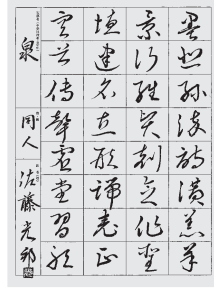 墨悲絲染詩讃羔羊
景行維賢剋念作聖
徳建名立形端表正
空谷傳聲虚堂習聴
泉 同人 佐藤光郎